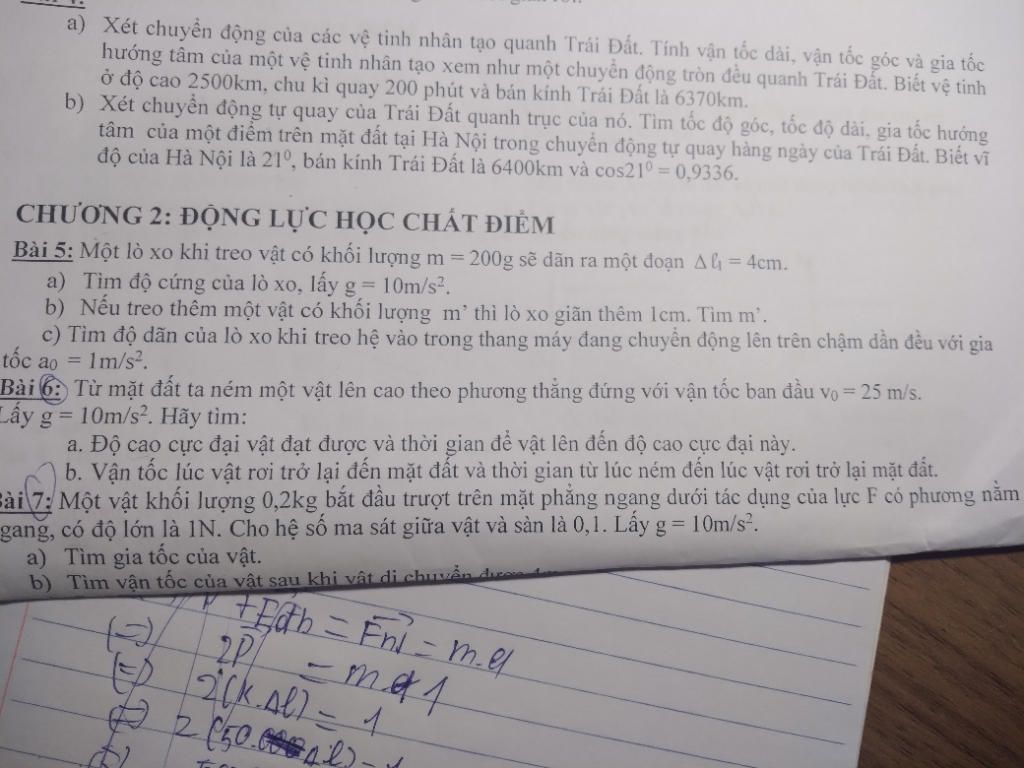 a) Xét chuyển động của các vệ tinh nhân tạo quanh Trái Đất. Tính vận tốc dài, vận tốc góc và gia tốc
hướng tâm của một vệ tinh nhân tạo xem như một chuyển động tròn đều quanh Trái Đất. Biết vệ tinh
ở độ cao 2500km, chu kì quay 200 phút và bán kính Trái Đất là 6370km.
b) Xét chuyển động tự quay của Trái Đất quanh trục của nó. Tìm tốc độ góc, tốc độ dài, gia tốc hướng
tâm của một điểm trên mặt đất tại Hà Nội trong chuyển động tự quay hàng ngày của Trái Đất. Biết vĩ
độ của Hà Nội là 21⁰, bán kính Trái Đất là 6400km và cos21⁰ = 0,9336.
CHƯƠNG 2: ĐỘNG LỰC HỌC CHẤT ĐIỂM
Bài 5: Một lò xo khi treo vật có khối lượng m = 200g sẽ dãn ra một đoạn Δℓ₁ = 4cm.
a) Tìm độ cứng của lò xo, lấy g = 10m/s².
b) Nếu treo thêm một vật có khối lượng m' thì lò xo giãn thêm 1cm. Tìm m'.
c) Tìm độ dãn của lò xo khi treo hệ vào trong thang máy đang chuyển động lên trên chậm dần đều với gia
tốc a₀ = 1m/s².
Bài 6: Từ mặt đất ta ném một vật lên cao theo phương thẳng đứng với vận tốc ban đầu v₀ = 25 m/s.
Lấy g = 10m/s². Hãy tìm:
a. Độ cao cực đại vật đạt được và thời gian để vật lên đến độ cao cực đại này.
b. Vận tốc lúc vật rơi trở lại đến mặt đất và thời gian từ lúc ném đến lúc vật rơi trở lại mặt đất.
Bài 7: Một vật khối lượng 0,2kg bắt đầu trượt trên mặt phẳng ngang dưới tác dụng của lực F có phương nằm
gang, có độ lớn là 1N. Cho hệ số ma sát giữa vật và sàn là 0,1. Lấy g = 10m/s².
a) Tìm gia tốc của vật.
b) Tìm vận tốc của vật sau khi vật di chuyển được
= m.a
(=) 2P = m.a 1
(=) 2(k.Δl) = 1
(=) 2(50. Δl) = 1